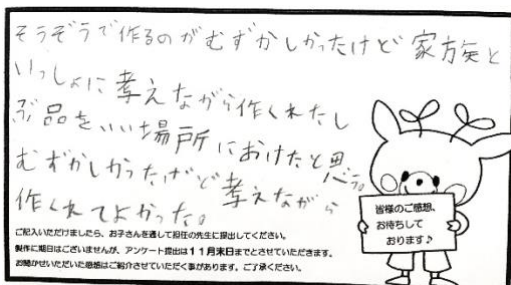 そうぞうで作るのがむずかしかったけど家族と
いっしょに考えながら作くれたし
ぶ品をいい場所におけたと思う。
むずかしかったけど考えながら
作くれてよかった。
ご記入いただけましたら、お子さんを通して担任の先生に提出してください。
製作に期日はございませんが、アンケート提出は11月末日までとさせていただきます。
お聞かせいただいた感想はご紹介させていただく事があります。ご了承ください。
皆様のご感想、
お待ちして
おります♪